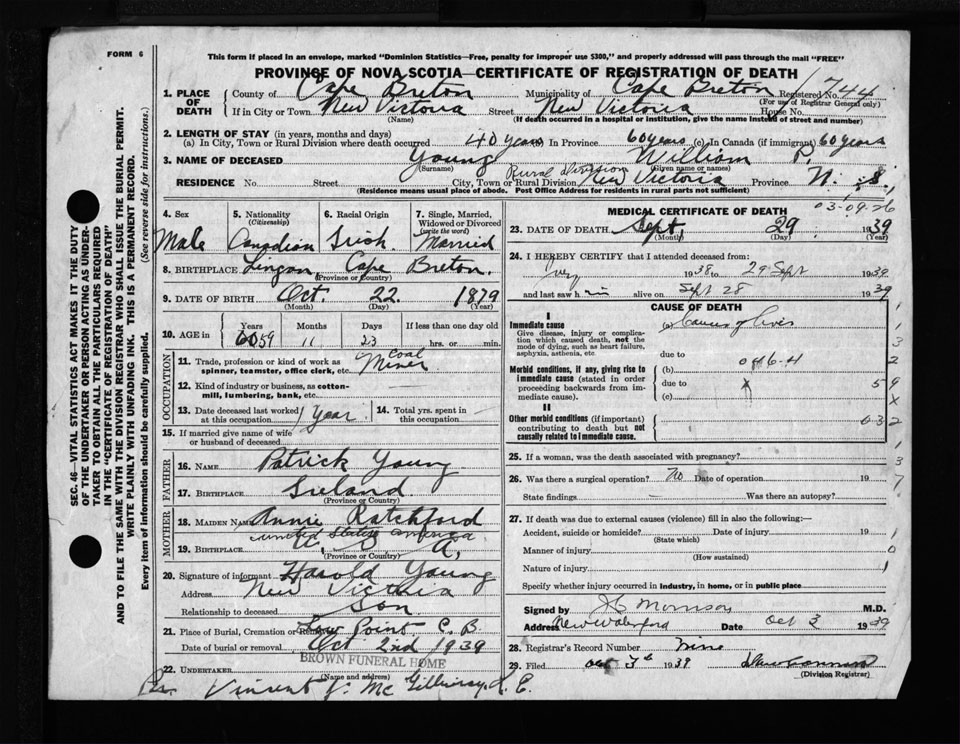 FORM 6
This form if placed in an envelope, marked "Dominion Statistics—Free, penalty for improper use $300," and properly addressed will pass through the mail "FREE"
PROVINCE OF NOVA SCOTIA—CERTIFICATE OF REGISTRATION OF DEATH
1. PLACE OF DEATH County of Cape Breton Municipality of Cape Breton Registered No. 744
(For use of Registrar General only)
If in City or Town New Victoria Street New Victoria House No.
(Name) (If death occurred in a hospital or institution, give the name instead of street and number)
2. LENGTH OF STAY (in years, months and days)
(a) In City, Town or Rural Division where death occurred 40 years In Province 60 years (c) In Canada (if immigrant) 60 years
3. NAME OF DECEASED Young William P.
(Surname) (Given name or names)
RESIDENCE No. Street City, Town or Rural Division Rural division New Victoria Province N. S.
(Residence means usual place of abode. Post Office Address for residents in rural parts not sufficient)
4. Sex Male
5. Nationality (Citizenship) Canadian
6. Racial Origin Irish
7. Single, Married, Widowed or Divorced (write the word) Married
8. BIRTHPLACE Lingan, Cape Breton.
(Province or Country)
9. DATE OF BIRTH Oct. 22 1879
(Month) (Day) (Year)
10. AGE in Years Months Days If less than one day old
59 11 23 hrs. or min.
OCCUPATION
11. Trade, profession or kind of work as spinner, teamster, office clerk, etc. Coal Miner
12. Kind of industry or business, as cotton-mill, lumbering, bank, etc.
13. Date deceased last worked at this occupation 1 year
14. Total yrs. spent in this occupation
15. If married give name of wife or husband of deceased
FATHER
16. NAME Patrick Young
17. BIRTHPLACE Ireland
(Province or Country)
MOTHER
18. MAIDEN NAME Annie Ratchford
19. BIRTHPLACE United States America U. S. A.
(Province or Country)
20. Signature of informant Harold Young
Address New Victoria
Relationship to deceased Son
21. Place of Burial, Cremation or Removal Low Point C. B.
Date of burial or removal Oct 2nd 1939
BROWN FUNERAL HOME
22. UNDERTAKER
(Name and address)
Per Vincent J. Mc Gillivray, L. C.
MEDICAL CERTIFICATE OF DEATH 03-09-26
23. DATE OF DEATH Sept. 29 1939
(Month) (Day) (Year)
24. I HEREBY CERTIFY that I attended deceased from:
1938 to 29 Sept 1939
and last saw him alive on Sept 28 1939
CAUSE OF DEATH
I
Immediate cause
Give disease, injury or complication which caused death, not the mode of dying, such as heart failure, asphyxia, asthenia, etc.
(a) Cancer of Liver
due to
Morbid conditions, if any, giving rise to immediate cause (stated in order proceeding backwards from immediate cause).
(b) 046-4
due to x
(c)
II
Other morbid conditions (if important) contributing to death but not causally related to immediate cause.
25. If a woman, was the death associated with pregnancy?
26. Was there a surgical operation? No Date of operation 19
State findings Was there an autopsy?
27. If death was due to external causes (violence) fill in also the following:—
Accident, suicide or homicide? Date of injury 19
(State which)
Manner of injury
(How sustained)
Nature of injury
Specify whether injury occurred in industry, in home, or in public place
Signed by J C Morrison M.D.
Address New Waterford Date Oct 3 1939
28. Registrar's Record Number Nine
29. Filed Oct 3rd 1939
(Division Registrar)
SEC. 46—VITAL STATISTICS ACT MAKES IT THE DUTY
OF THE UNDERTAKER OR PERSON ACTING AS UNDER-
TAKER TO OBTAIN ALL THE PARTICULARS REQUIRED
IN THE "CERTIFICATE OF REGISTRATION OF DEATH"
AND TO FILE THE SAME WITH THE DIVISION REGISTRAR WHO SHALL ISSUE THE BURIAL PERMIT.
WRITE PLAINLY WITH UNFADING INK. THIS IS A PERMANENT RECORD.
Every item of information should be carefully supplied. (See reverse side for instructions.)